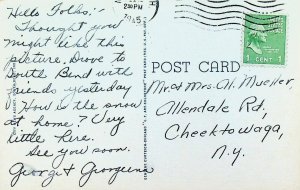 2 30 PM
Hello Folks:-
Thought you
might like this
picture. Drove to
South Bend with
friends yesterday
How is the snow
at home? Very
little here.
See you soon.
George & Georgiena
POST CARD
1 CENT 1
Mr. & Mrs. Al. Mueller,
Allendale Rd,
Cheektowaga,
N.Y.